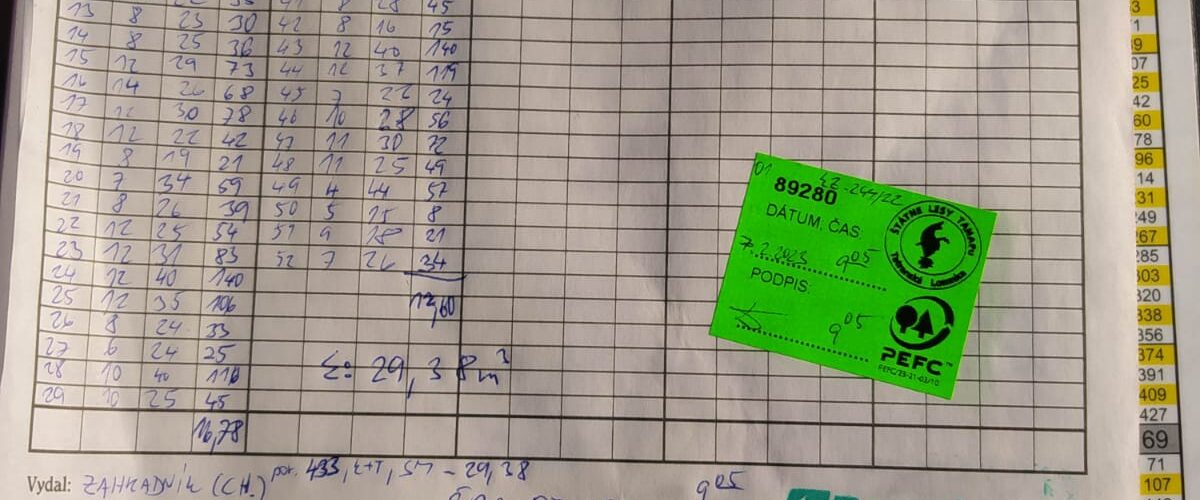 13 8 23 30 42 8 16 15
14 8 25 36 43 12 40 140
15 12 29 73 44 12 37 119
16 14 26 68 45 7 22 24
17 30 78 46 10 28 56
18 12 22 42 47 11 30 72
19 8 19 21 48 11 25 49
20 7 34 59 49 4 44 57
21 8 26 39 50 5 15 8
22 12 25 54 51 9 18 21
23 12 31 83 52 7 26 34
24 12 40 140
25 12 35 106 12,60
26 8 24 33
27 6 24 25
28 10 40 116
29 10 25 45
Σ: 29,38m³
16,78
Vydal: ZAHRADNÍK (CH.) por. 433, SM - 29,38
9 05
01 LZ-244/22
89280
DÁTUM, ČAS:
7.2.2023 9 05
PODPIS:
9 05
ŠTÁTNE LESY TANAPu
Tatranská Lomnica
PEFC™
PEFC/23-21-03/10
25
42
60
78
96
14
31
249
267
285
303
320
338
356
374
391
409
427
69
71
107